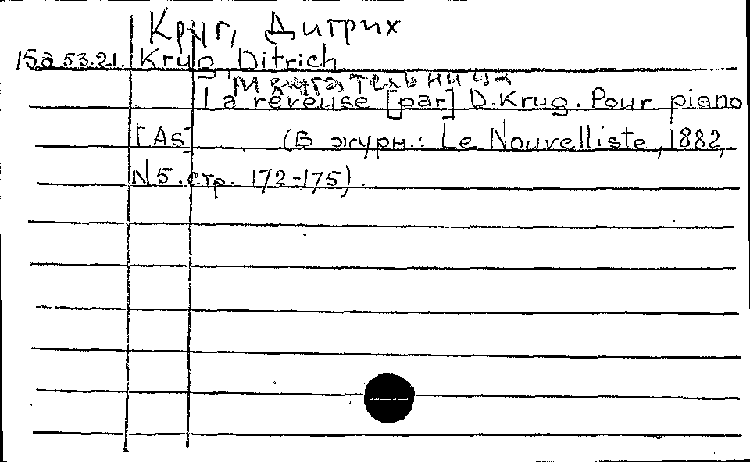 Круг, Дитрих
15a.53.21. Krug Ditrich
Мечтательница
La rêveuse [par] D. Krug. Pour piano
[As] (В журн.: Le Nouvelliste, 1882,
N5. стр. 172-175).